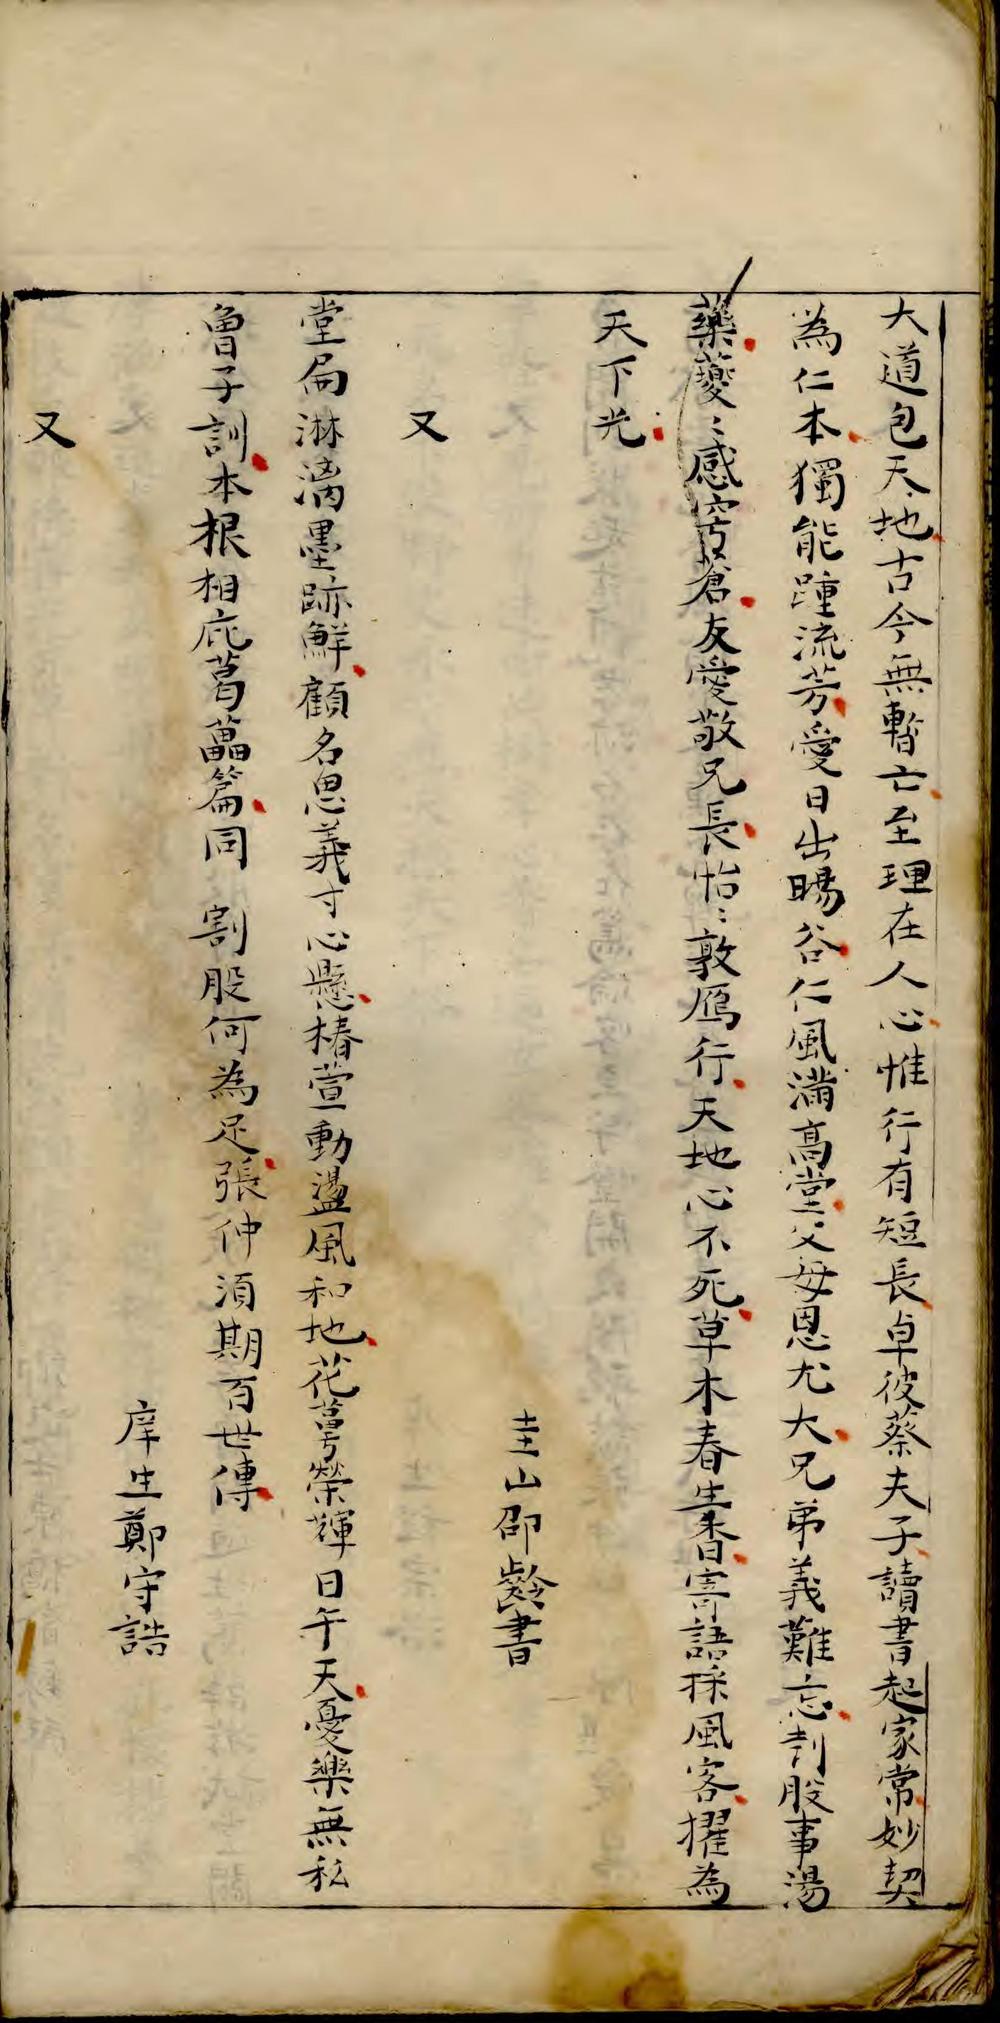 大道包天地古今無暫亡至理在人心惟行有短長卓彼蔡夫子讀書起家常妙契
為仁本獨能踵流芳愛日出暘谷仁風滿高堂父母恩尤大兄弟義難忘刲股事湯
藥夔〻感穹蒼友愛敬兄長怡〻敦鴈行天地心不死草木春生香寄語採風客擢為
天下光
圭山邵齡書
又
堂扁淋漓墨跡鮮顧名思義寸心懸椿萱動盪風和地花萼榮輝日午天憂樂無私
曾子訓本根相庇葛藟篇同割股何為足張仲須期百世傳
庠生鄭守誥
又